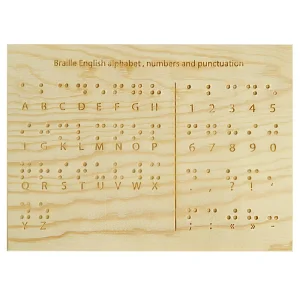 Braille English alphabet , numbers and punctuation
A B C D E F G H
I J K L M N O P
Q R S T U V W X
Y Z
1 2 3 4 5
6 7 8 9 0
. , ? ! '
; : « » -